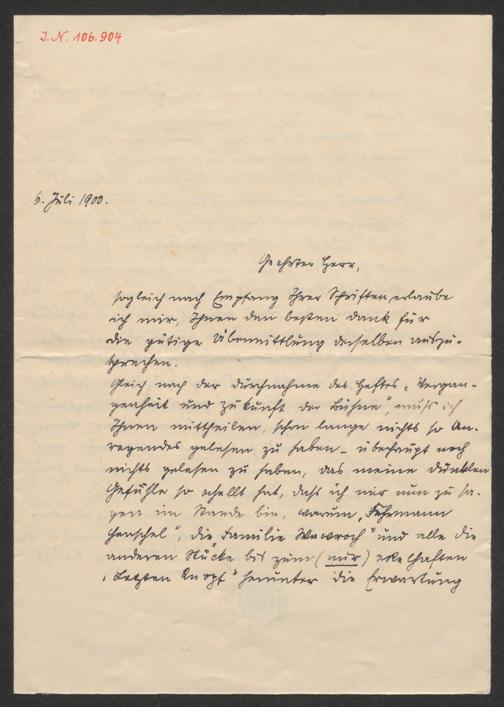 I.N. 106.904
6. Juli 1900.
Geehrter Herr,
sogleich nach Empfang Ihrer Schriften, erlaube
ich mir, Ihnen den besten Dank für
die gütige Übermittlung derselben auszu-
sprechen.
Gleich nach der Durchnahme des Heftes „Vergan-
genheit und Zukunft der Bühne“, muß ich
Ihnen mittheilen, schon lange nichts so An-
regendes gelesen zu haben – überhaupt noch
nichts gelesen zu haben, das meine dunklen
Gefühle so erhellt hat, daß ich mir nun zu sa-
gen im Stande bin, warum „Fuhrmann
Henschel“, die Familie Wawroch“ und alle die
anderen Stücke bis zum (mir) ekelhaften
„Letzten Knopf“ herunter die Erwartung